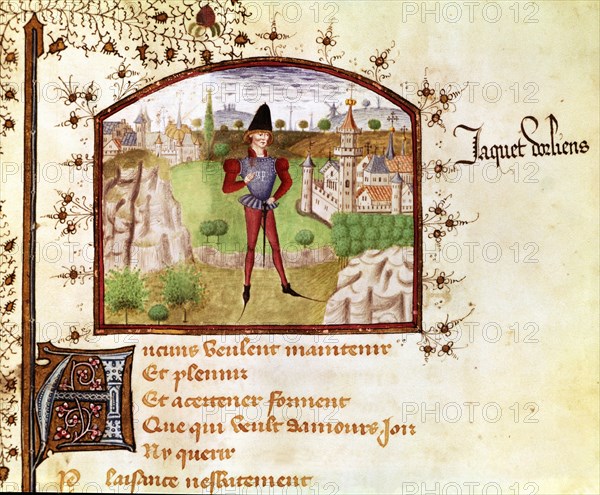 Jaquet dorliens
Aucuns veulent maintenir
Et plevir
Et acertener forment
Que qui veult damours Joir
Ny querir
Plaisance nesbatement
PHOTO12